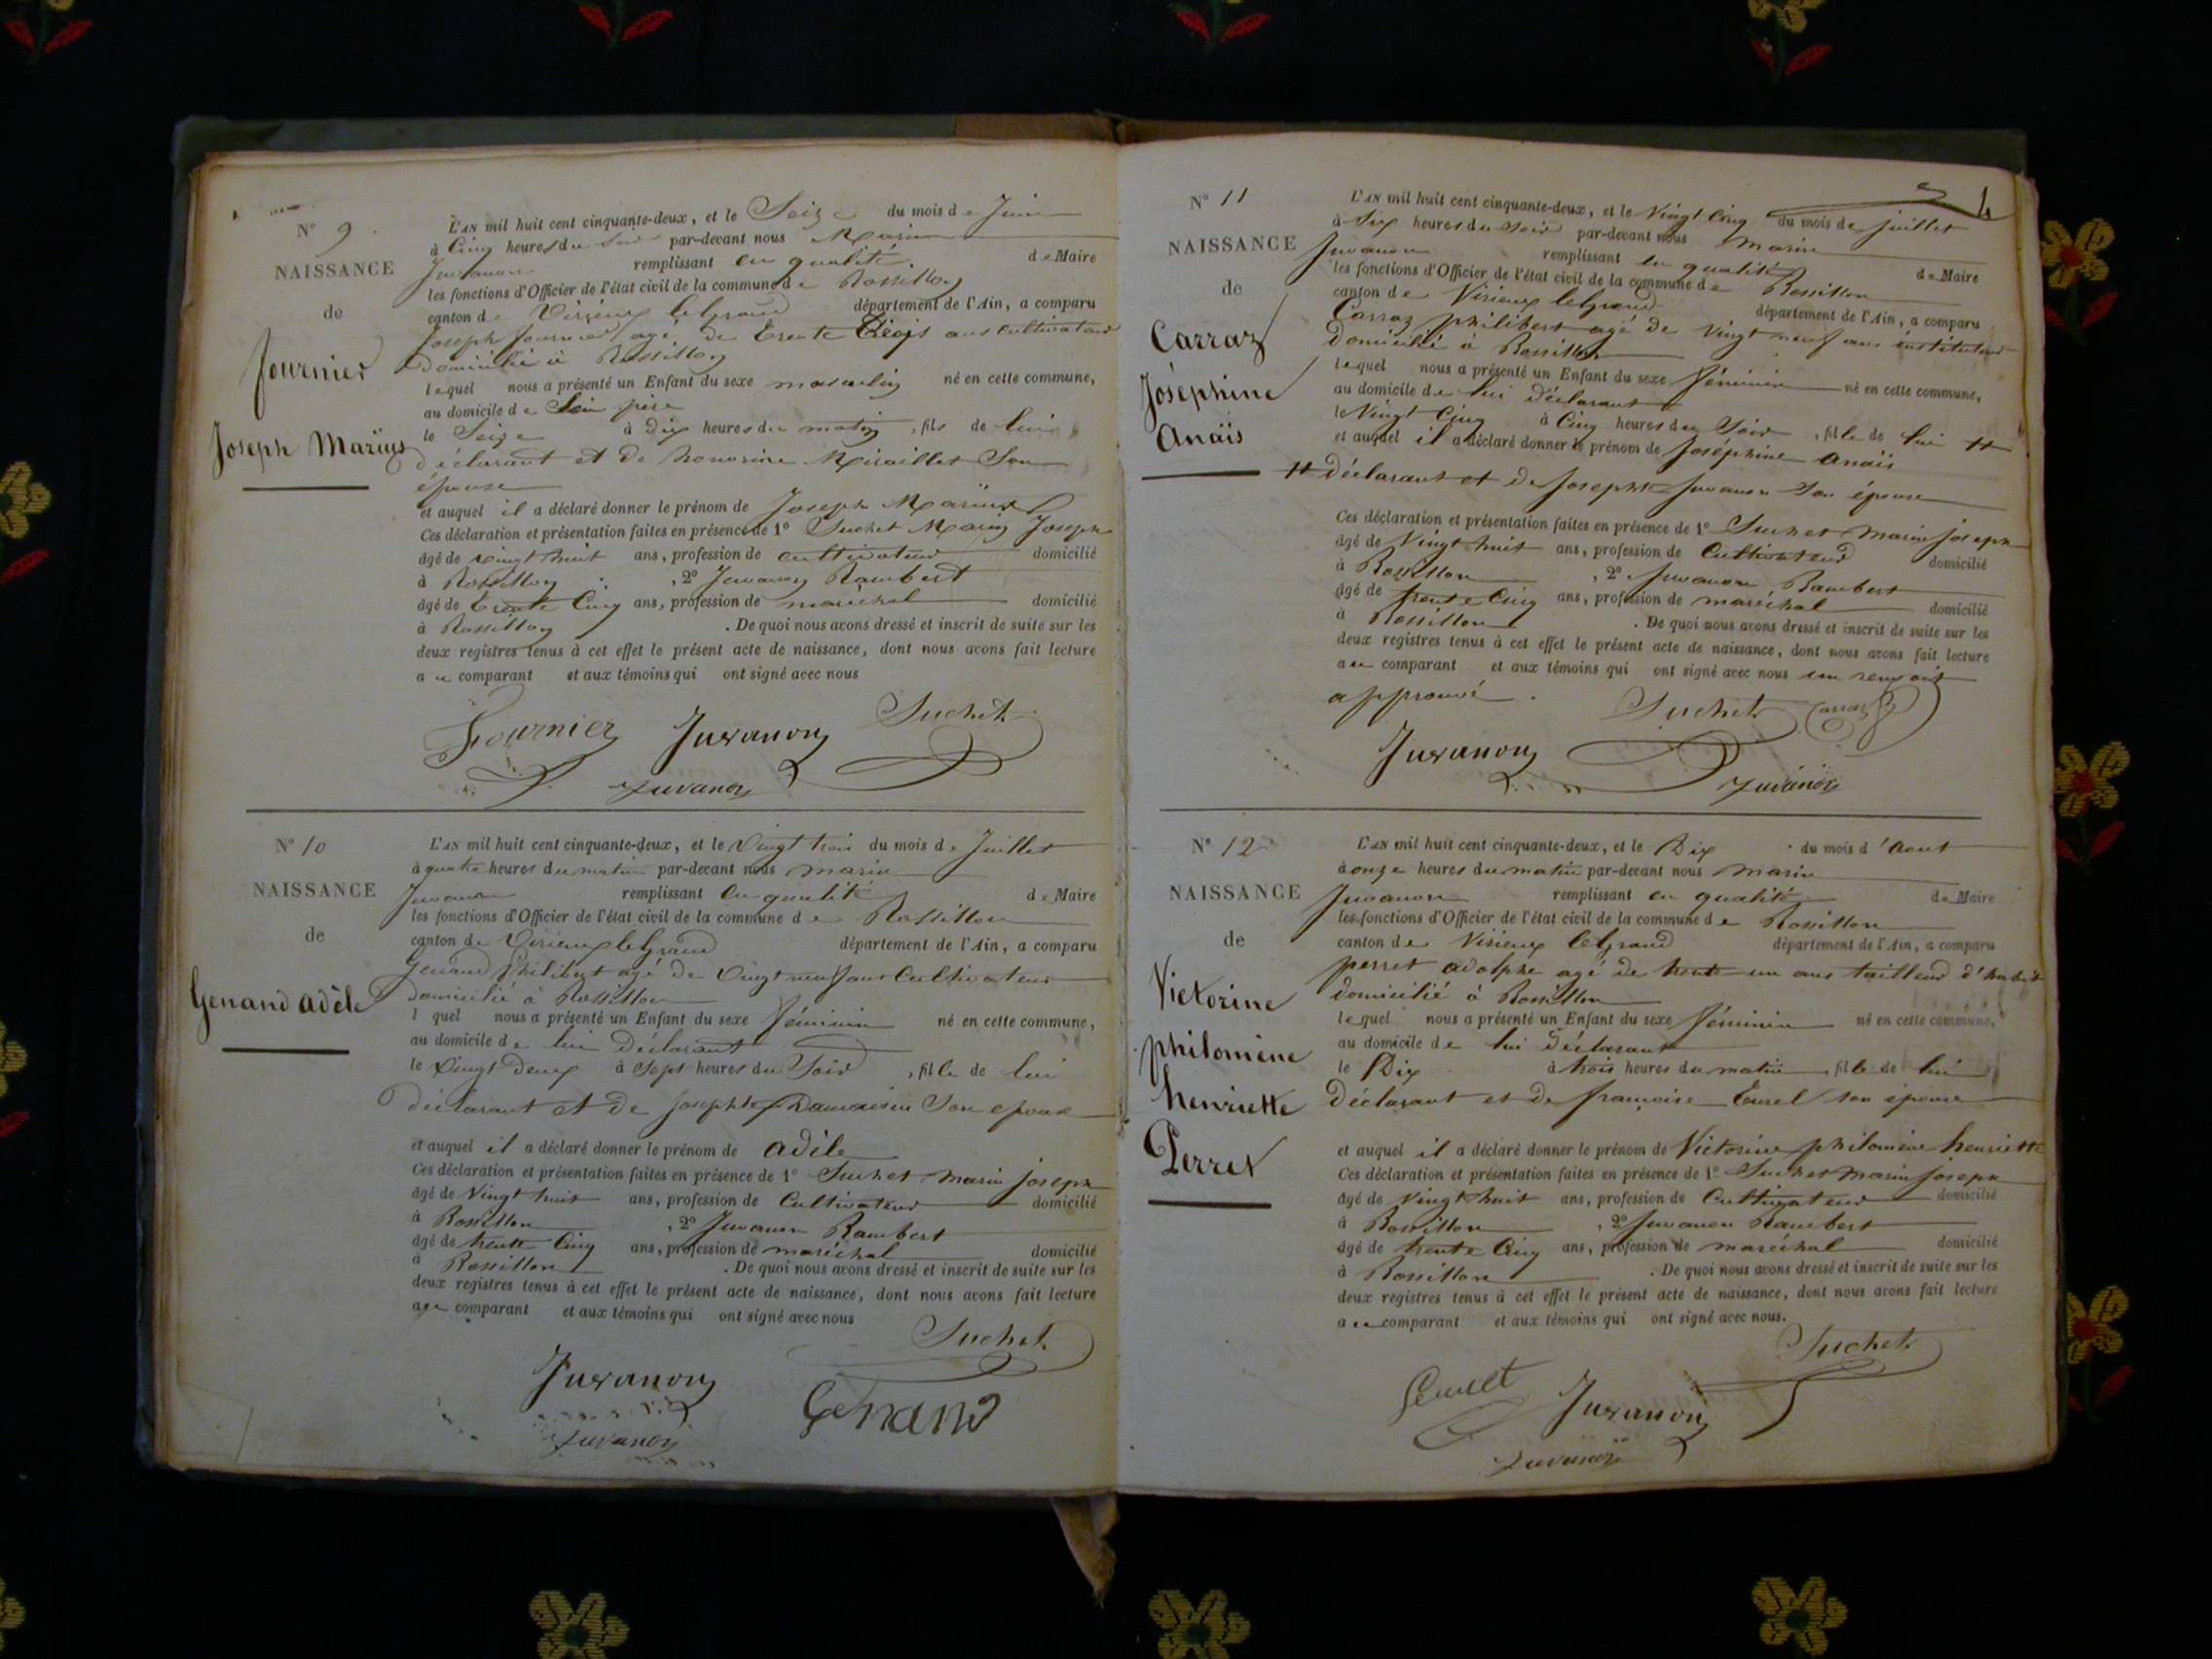 N° 9
NAISSANCE
de
Fournier
Joseph Marius
L'AN mil huit cent cinquante-deux, et le Seize du mois de Juin
à Cinq heures du Soir par-devant nous Marin
Juvanon remplissant en qualité de Maire
les fonctions d'Officier de l'état civil de la commune de Rossillon
canton de Virieux le Grand département de l'Ain, a comparu
Joseph Fournier agé de trente trois ans cultivateur
Domicilié à Rossillon
lequel nous a présenté un Enfant du sexe masculin né en cette commune,
au domicile de Son père
le Seize à dix heures du matin, fils de lui
déclarant et de honorine Miraillet Son
épouse
et auquel il a déclaré donner le prénom de Joseph Marius
Ces déclaration et présentation faites en présence de 1° Suchet Marin Joseph
âgé de vingt huit ans, profession de cultivateur domicilié
à Rossillon, 2° Juvanon Rambert
âgé de trente Cinq ans, profession de maréchal domicilié
à Rossillon. De quoi nous avons dressé et inscrit de suite sur les
deux registres tenus à cet effet le présent acte de naissance, dont nous avons fait lecture
au comparant et aux témoins qui ont signé avec nous
Fournier Juvanon Suchet
Juvanon
N° 10
NAISSANCE
de
Genand adèle
L'AN mil huit cent cinquante-deux, et le Vingt trois du mois de Juillet
à quatre heures du matin par-devant nous marin
Juvanon remplissant en qualité de Maire
les fonctions d'Officier de l'état civil de la commune de Rossillon
canton de Virieux le Grand département de l'Ain, a comparu
Genand Philibert agé de Vingt neuf ans Cultivateur
domicilié à Rossillon
l quel nous a présenté un Enfant du sexe féminin né en cette commune,
au domicile de lui Déclarant
le Vingt Deux à Sept heures du Soir, fille de lui
déclarant et de josephte Son epouse
et auquel il a déclaré donner le prénom de adèle
Ces déclaration et présentation faites en présence de 1° Suchet marin joseph
âgé de Vingt huit ans, profession de Cultivateur domicilié
à Rossillon, 2° Juvanon Rambert
âgé de trente Cinq ans, profession de maréchal domicilié
à Rossillon. De quoi nous avons dressé et inscrit de suite sur les
deux registres tenus à cet effet le présent acte de naissance, dont nous avons fait lecture
au comparant et aux témoins qui ont signé avec nous
Suchet
Juvanon Genand
Juvanon
N° 11
NAISSANCE
de
Carraz
Joséphine
Anaïs
L'AN mil huit cent cinquante-deux, et le Vingt Cinq du mois de juillet
à Six heures du Soir par-devant nous marin
Juvanon remplissant en qualité de Maire
les fonctions d'Officier de l'état civil de la commune de Rossillon
canton de Virieux le Grand département de l'Ain, a comparu
Carraz philibert agé de vingt neuf ans instituteur
domicilié à Rossillon
lequel nous a présenté un Enfant du sexe féminin né en cette commune,
au domicile de lui déclarant
le Vingt Cinq à Cinq heures du Soir, fille de lui #
et auquel il a déclaré donner le prénom de Joséphine Anaïs
# Déclarant et de Josephte Juvanon Son épouse
Ces déclaration et présentation faites en présence de 1° Suchet marin joseph
âgé de Vingt huit ans, profession de Cultivateur domicilié
à Rossillon, 2° Juvanon Rambert
âgé de trente Cinq ans, profession de maréchal domicilié
à Rossillon. De quoi nous avons dressé et inscrit de suite sur les
deux registres tenus à cet effet le présent acte de naissance, dont nous avons fait lecture
au comparant et aux témoins qui ont signé avec nous un renvoi
approuvé.
Suchet Carraz
Juvanon
Juvanon
N° 12
NAISSANCE
de
Victorine
philomène
henriette
Perret
L'AN mil huit cent cinquante-deux, et le Dix du mois d'Aout
à onze heures du matin par-devant nous marin
Juvanon remplissant en qualité de Maire
les fonctions d'Officier de l'état civil de la commune de Rossillon
canton de Virieux le Grand département de l'Ain, a comparu
perret adolphe agé de trente un ans tailleur d'habit
domicilié à Rossillon
lequel nous a présenté un Enfant du sexe féminin né en cette commune,
au domicile de lui déclarant
le Dix à trois heures du matin, fille de lui
Déclarant et de françoise son épouse
et auquel il a déclaré donner le prénom de Victorine philomène henriette
Ces déclaration et présentation faites en présence de 1° Suchet marin joseph
âgé de Vingt huit ans, profession de Cultivateur domicilié
à Rossillon, 2° Juvanon Rambert
âgé de trente Cinq ans, profession de maréchal domicilié
à Rossillon. De quoi nous avons dressé et inscrit de suite sur les
deux registres tenus à cet effet le présent acte de naissance, dont nous avons fait lecture
au comparant et aux témoins qui ont signé avec nous.
Suchet
Juvanon
Juvanon